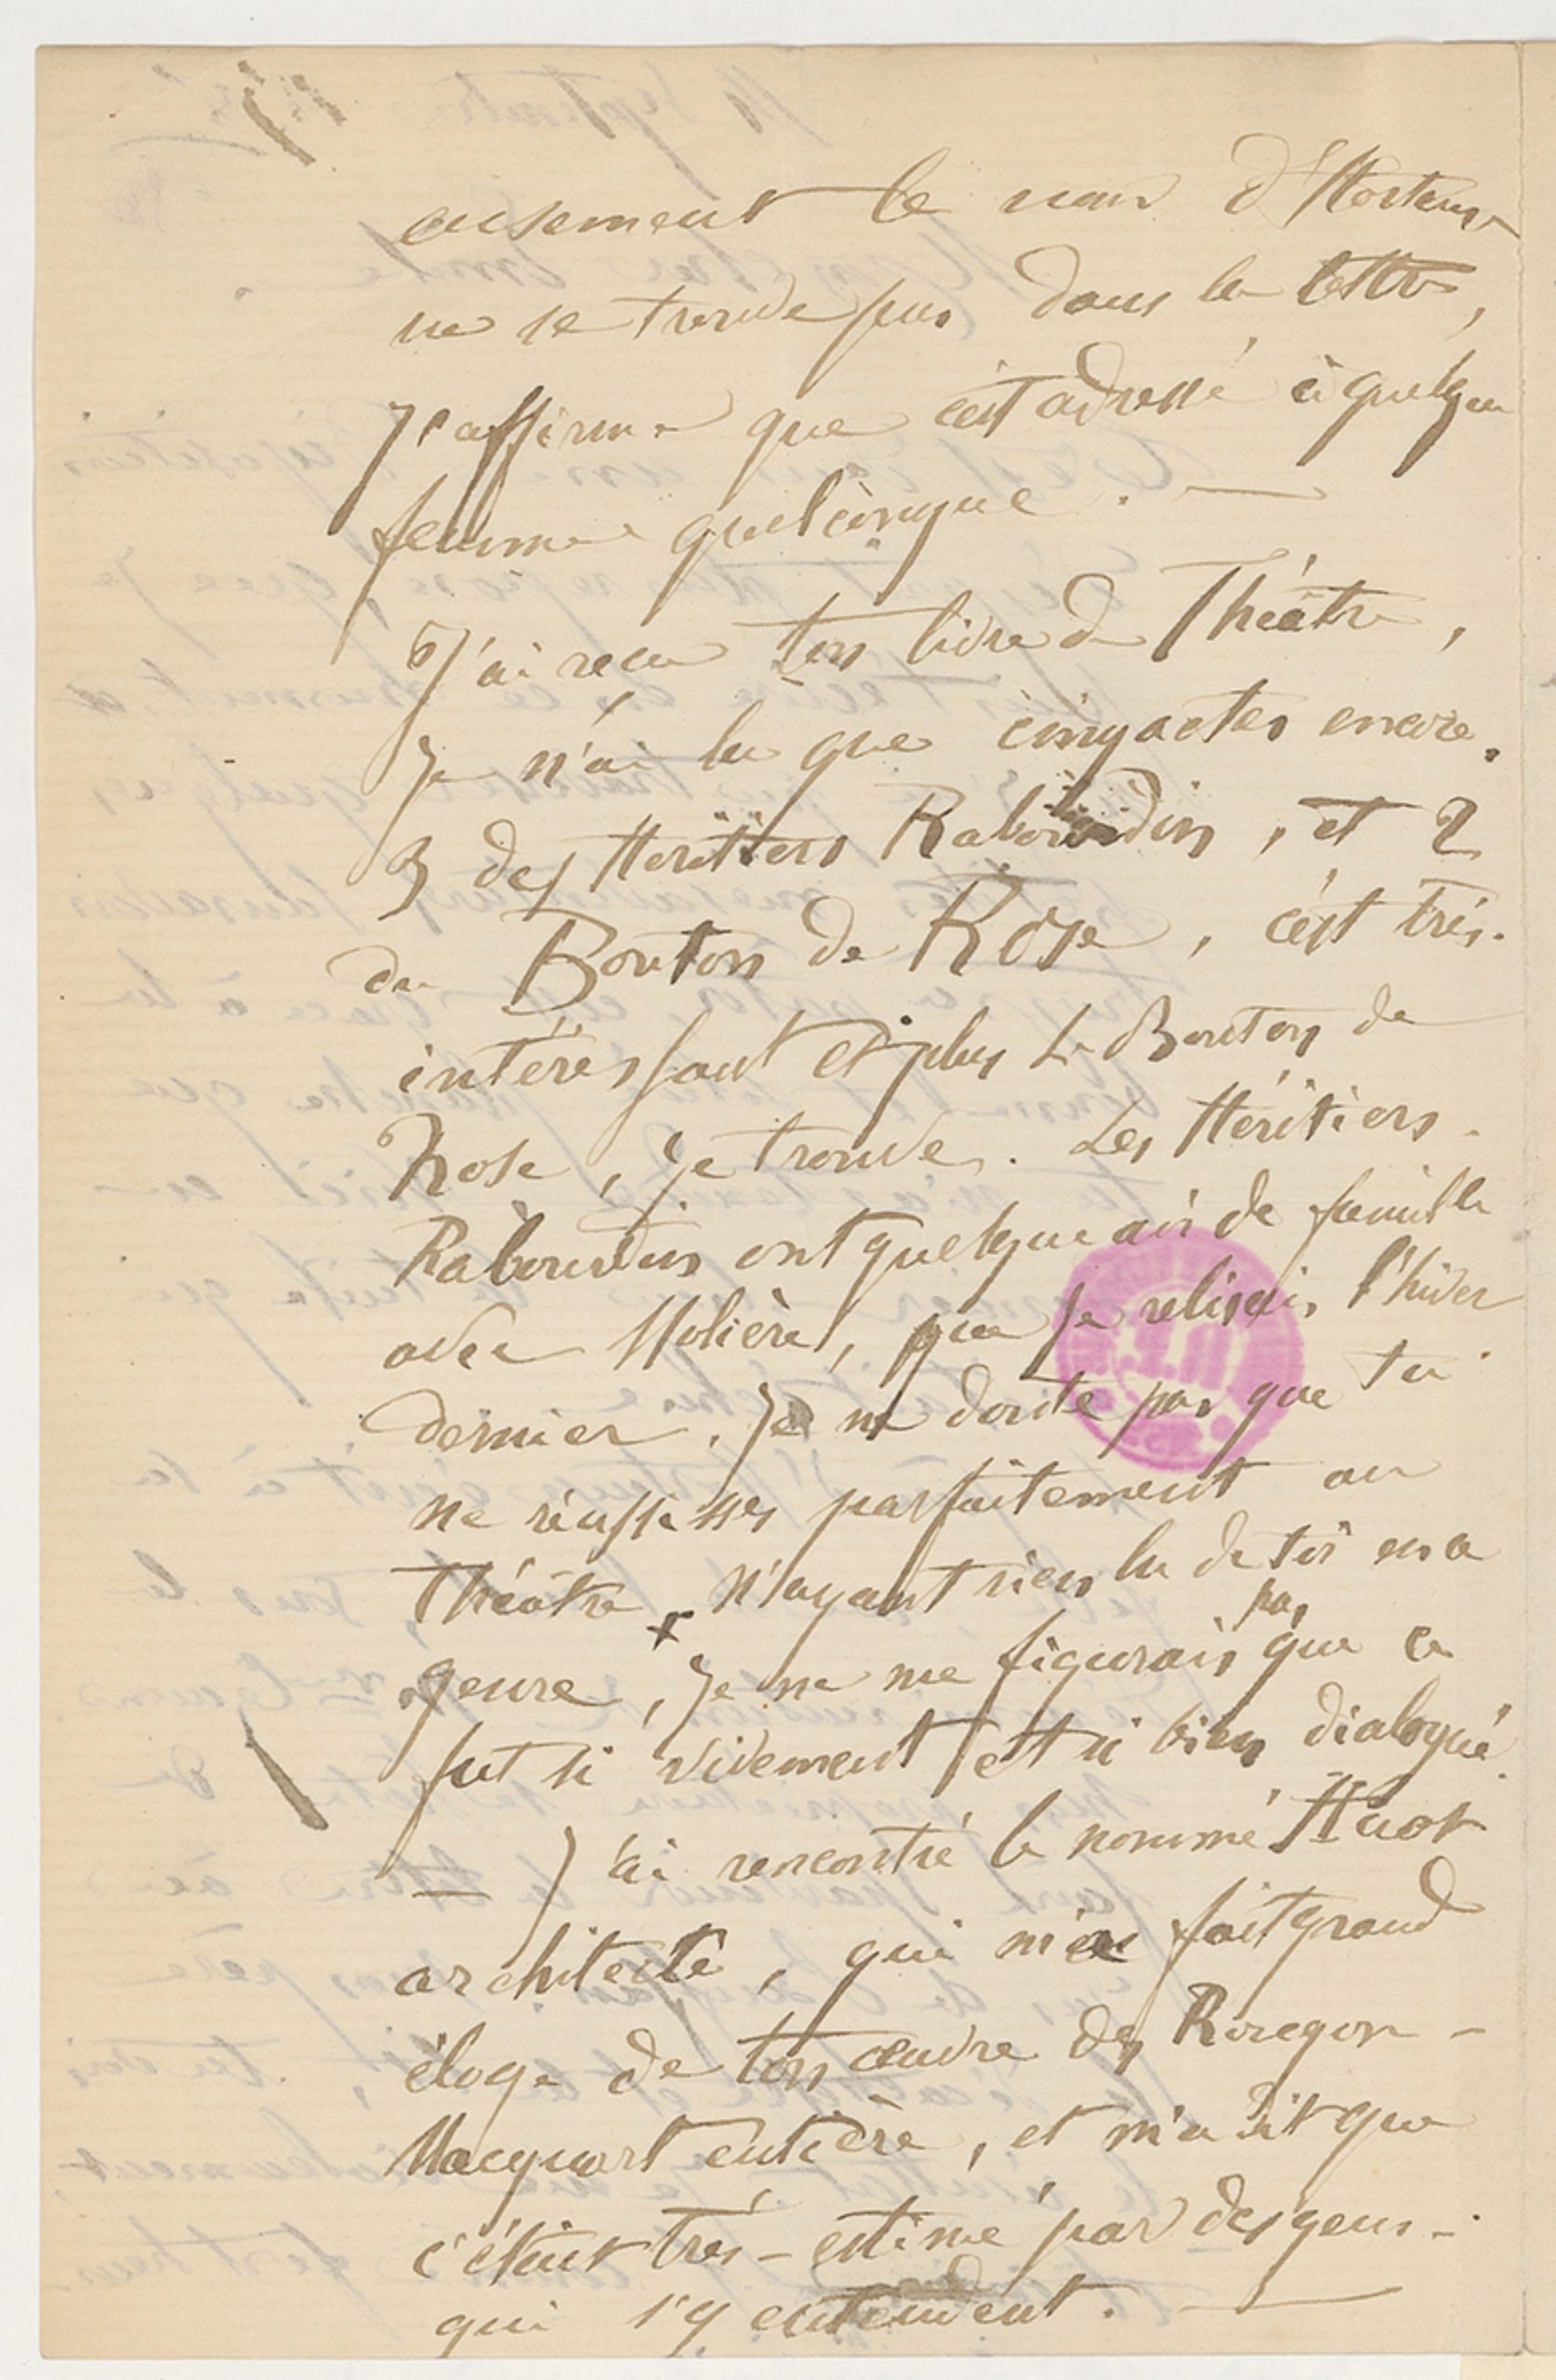 eusement le nom d'Hortense
ne se trouve pas dans la lettre,
j'affirme que c'est adressé à quelque
femme quelconque. —
J'ai reçu ton livre de Théâtre,
Je n'ai lu que cinq actes encore.
3 des Héritiers Rabourdin, et 2
du Bouton de Rose, c'est très.
intéressant et plus Le Bouton de
Rose, je trouve. Les Héritiers.
Rabourdin ont quelque air de famille
avec Molière, que je relisais l'hiver
dernier. Je ne doute pas que tu
ne réussisses parfaitement au
Théâtre, N'ayant rien lu de toi en ce
genre, Je ne me figurais pas que ce
fut si vivement et si bien dialogué.
— J'ai rencontré le nommé Huot
architecte, qui m'a fait grand
éloge de ton œuvre des Rougon-
Macquart entière, et m'a dit que
c'était très-estimé par des gens-
qui s'y entendent. —